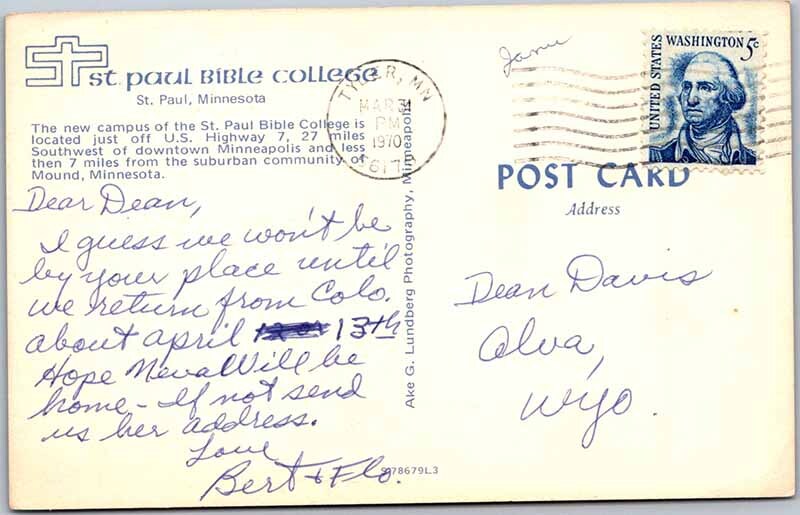 st. paul Bible college
St. Paul, Minnesota
The new campus of the St. Paul Bible College is
located just off U.S. Highway 7, 27 miles
Southwest of downtown Minneapolis and less
then 7 miles from the suburban community of
Mound, Minnesota.
Dear Dean,
I guess we won't be
by your place until
we return from Colo.
about april 13th
Hope Neva Will be
home - If not send
us her address.
Love
Bert + Flo.
S78679L3
Ake G. Lundberg Photography, Minneapolis
TYLER, MN
MAR 31
PM
1970
5617
UNITED STATES
WASHINGTON 5c
POST CARD
Address
Dean Davis
Alva,
Wyo.